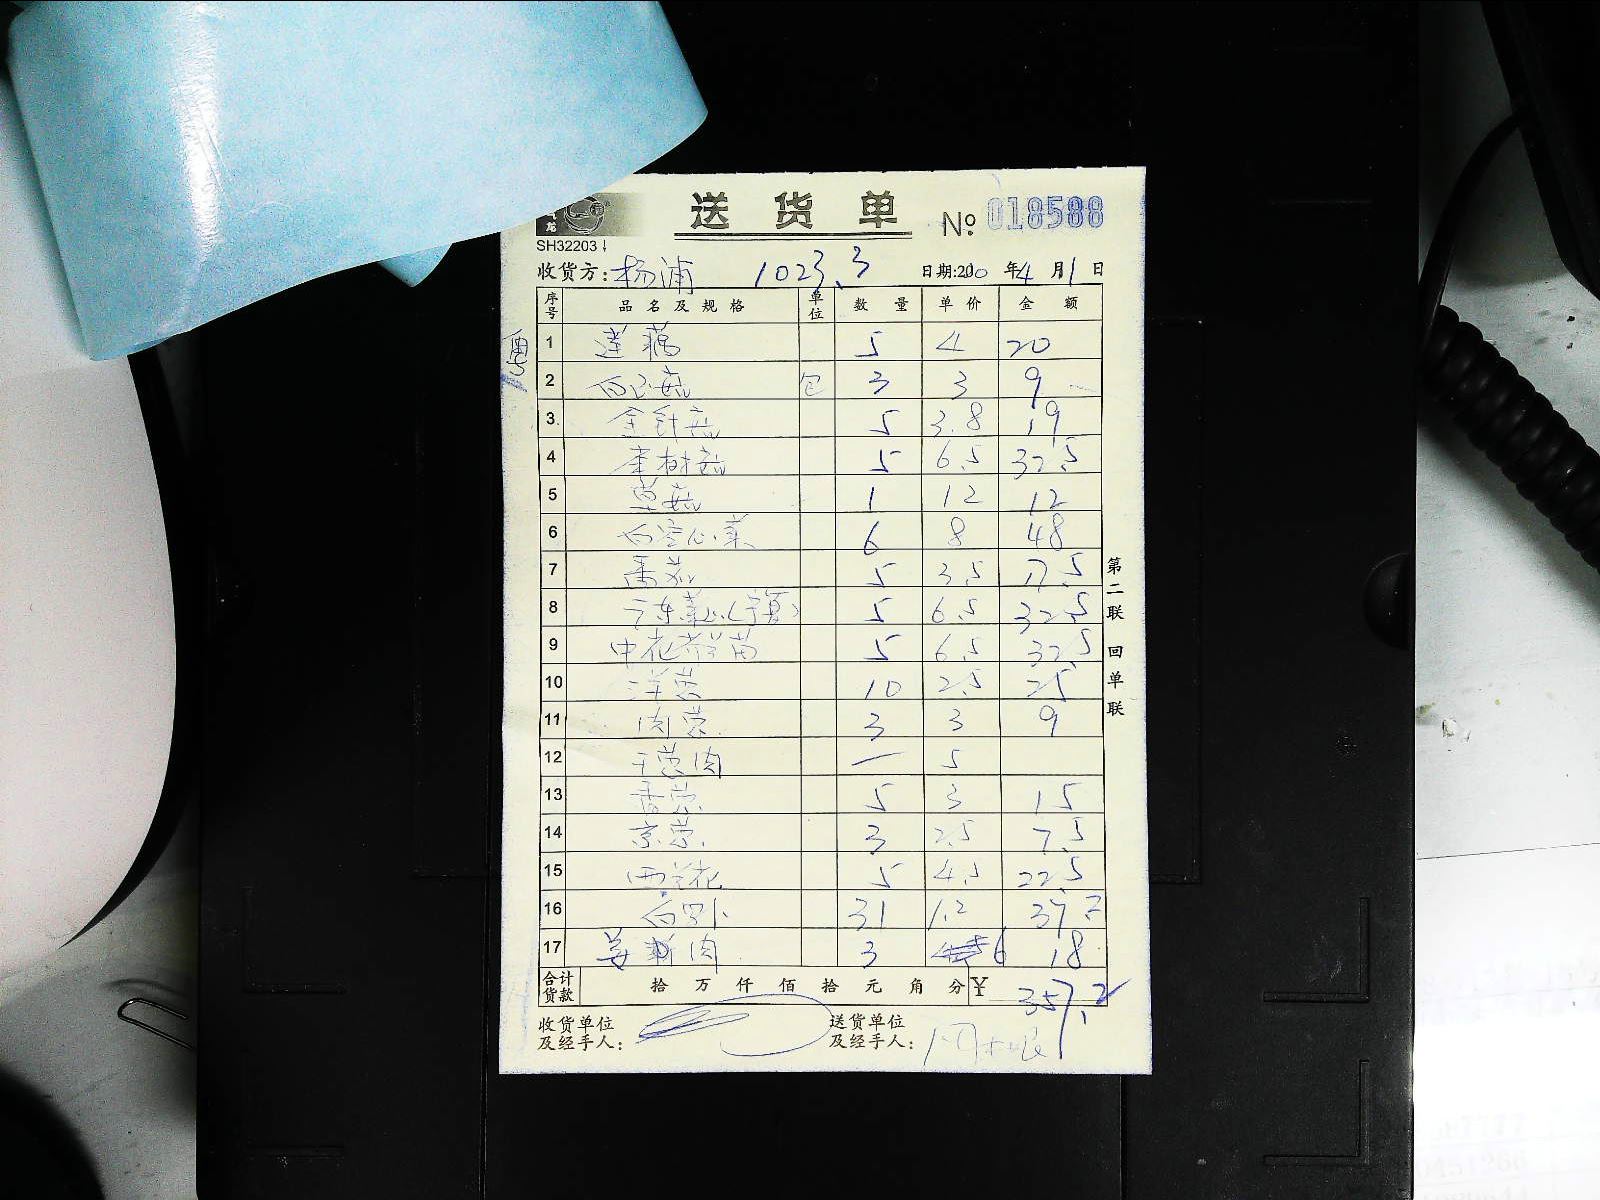 龙
送货单 № 018588
SH32203
收货方:杨浦 1023.3 日期:200 年4月1日
序号 品名及规格 单位 数量 单价 金额
1 莲藕 5 4 20
2 白玉菇 包 3 3 9
3. 金针菇 5 3.8 19
4 茶树菇 5 6.5 32.5
5 草菇 1 12 12
6 白空心菜 6 8 48
7 番茄 5 3.5 17.5
8 广东菜心(宁夏) 5 6.5 32.5
9 中花 苗 5 6.5 32.5
10 洋葱 10 2.5 25
11 肉葱 3 3 9
12 干葱肉 一 5
13 香葱 5 3 15
14 京葱 3 2.5 7.5
15 西兰花 5 4.5 22.5
16 白罗卜 31 1.2 37.2
17 姜 肉 3 6 18
合计货款 拾万仟佰拾元角分 ¥ 357.2
收货单位及经手人: 送货单位及经手人:
第二联 回单联